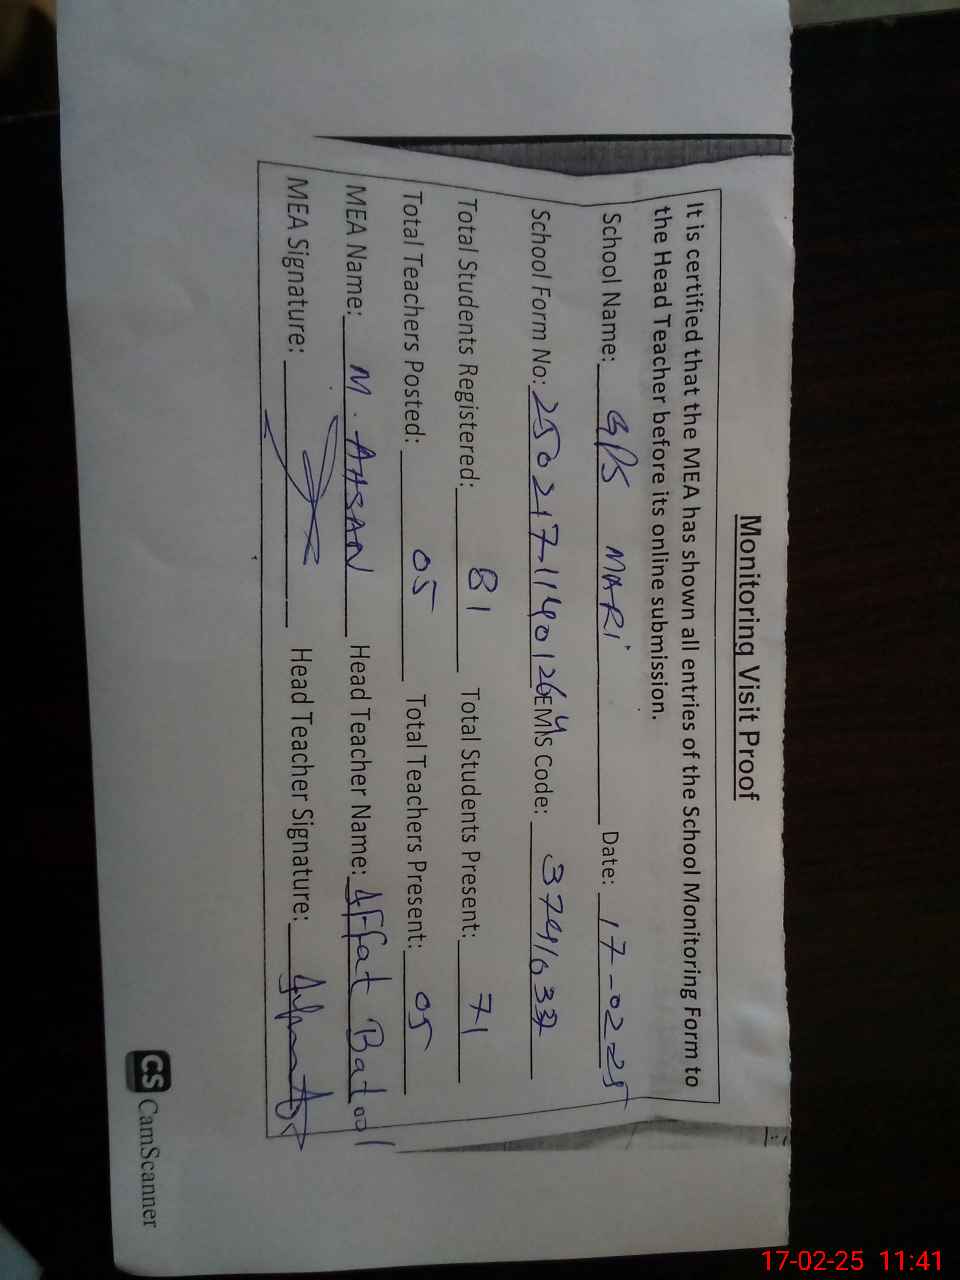 Monitoring Visit Proof
It is certified that the MEA has shown all entries of the School Monitoring Form to
the Head Teacher before its online submission.
School Name: GPS MARI Date: 17-02-25
School Form No: 250217-1140126 EMIS Code:
Total Students Registered: 81 Total Students Present: 71
Total Teachers Posted: 05 Total Teachers Present: 05
MEA Name: M. AHSAN Head Teacher Name: Affat Batool
MEA Signature: Head Teacher Signature:
CS CamScanner
17-02-25 11:41